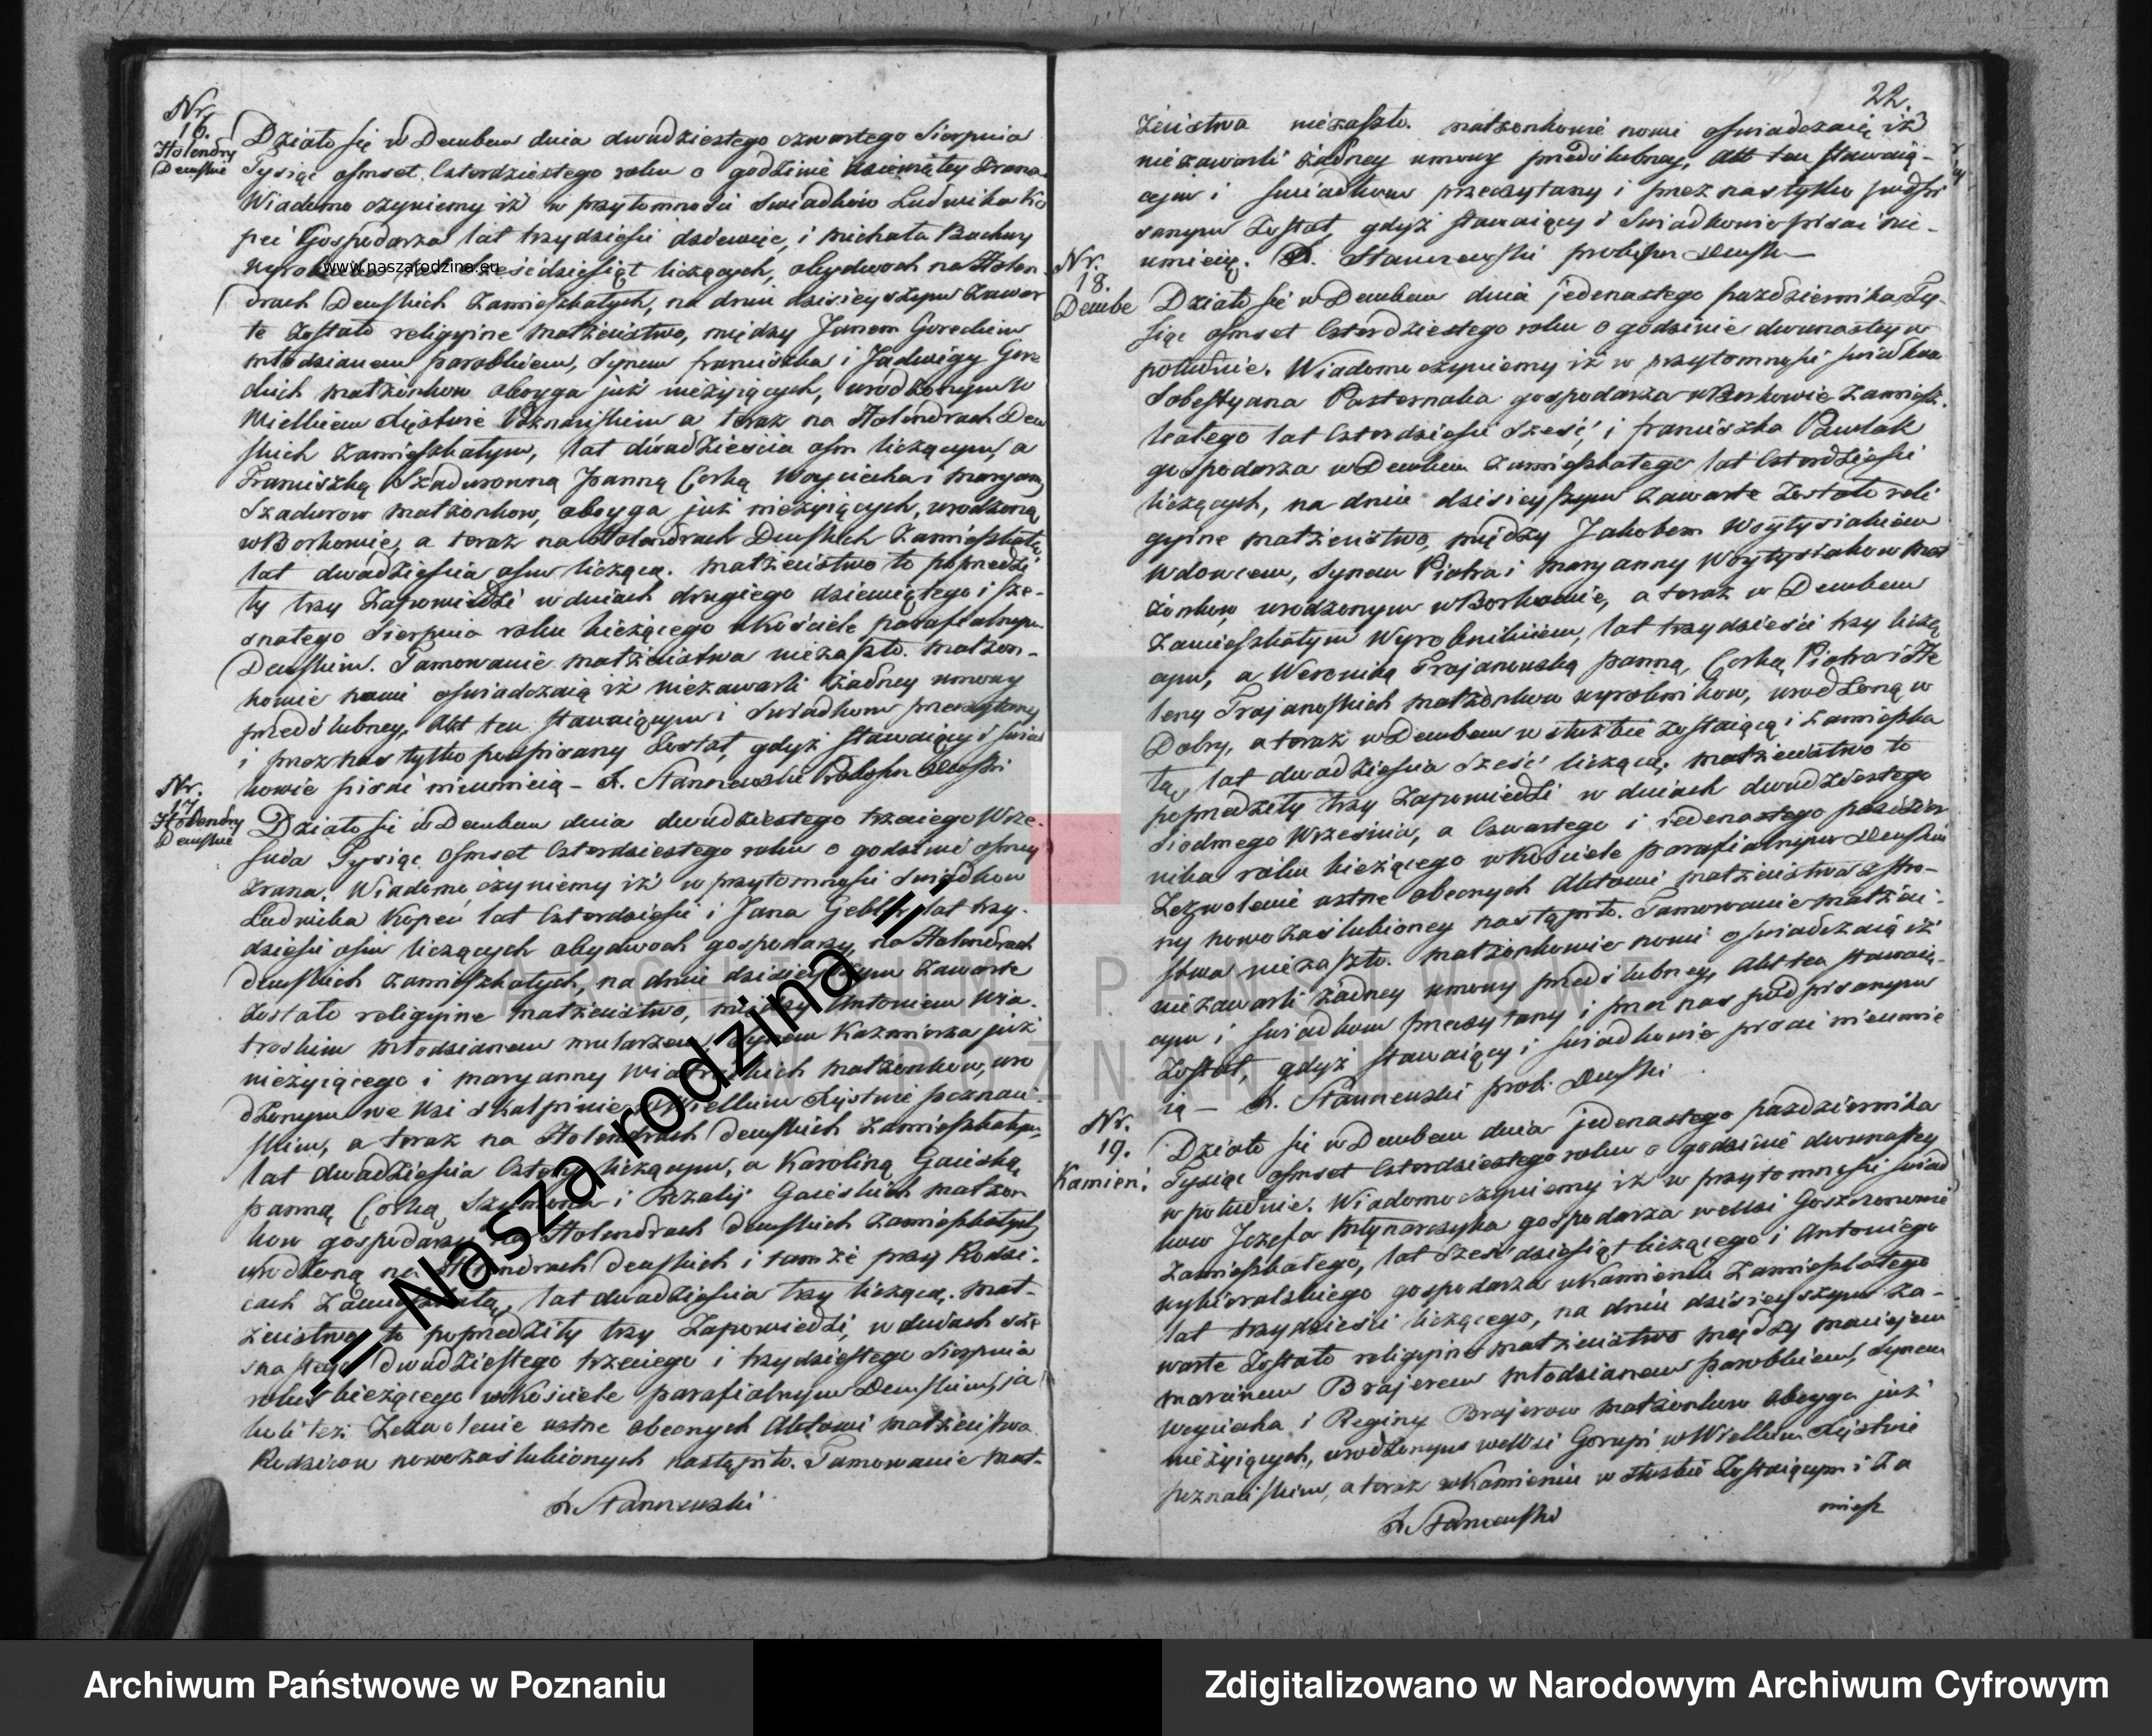 Nr.
16.
Holendry
Demskie
Działo się w Dembem dnia dwudziestego czwartego Sierpnia
Tysiąc osmset czterdziestego roku o godzinie dziewiątey zrana
Wiadomo czyniemy iż w przytomności Swiadków Ludwika Ko
peć Gospodarza lat trzydzieści dziewięć, i Michała Bachury
wyrobnika lat sześćdziesiąt liczących, obydwoch na Holen
drach Demskich zamieszkałych, na dniu dzisieyszym zawar
te zostało religyine małżeństwo, między Janem Goreckim
młodzianem parobkiem, Synem Franciszka i Jadwigy Gore
ckich małżonkow oboyga już nieżyiących, urodzonym w
Wielkiem Xięstwie Poznańskim a teraz na Holendrach Dem
skich zamieszkałym, lat dwadzieścia osm liczącym, a
Franciszką Szadurowną Panną Corką Woyciecha i Maryanny
Szadurow małżonkow, oboyga już nieżyiących, urodzoną
w Borkowie, a teraz na Holendrach Demskich zamieszkałą,
lat dwadzieścia osm liczącą. Małżeństwo to poprzedzi
ły trzy Zapowiedzi w dniach drugiego dziewiątego i sze-
snastego Sierpnia roku bieżącego w Kościele parafialnym
Demskim. Tamowanie małżeństwa niezaszło. Małżon-
kowie nowi oświadczaią iż niezawarli żadney umowy
przedślubney, Akt ten stawaiącym i Swiadkom przeczytany
i przez nas tylko podpisany został, gdyż stawaiący i swiad
kowie pisać nieumieią - A. Stanrewski Proboszcz Demski
Nr.
17
Holendry
Demskie
Działo się w Dembem dnia dwudziestego trzeciego Wrze-
snia Tysiąc osmset czterdziestego roku o godzinie osmey
zrana. Wiadomo czyniemy iż w przytomności Swiadkow
Ludwika Kopeć lat czterdzieści i Jana Gebler lat trzy-
dzieści osm liczących obydwoch gospodarzy na Holendrach
Demskich zamieszkałych, na dniu dzisieyszym zawarte
zostało religyine małżeństwo, między Antonim Wia-
troskim młodzianem mularzem, Synem Kazmierza już
nieżyiącego i Maryanny Wiatroskich małżonków, uro
dzonym we wsi Skałpinie w Wielkim Xięstwie poznań-
skim, a teraz na Holendrach Demskich zamieszkałym,
lat dwadzieścia cztery liczącym, a Karoliną Gaieską
panną Corką Szymona i Rozalij Gaieskich małżon
kow gospodarzy na Holendrach Demskich zamieszkałych,
urodzoną na Holendrach Demskich i tamże przy Rodzi-
cach zamieszkałą, lat dwadzieścia trzy liczącą. Mał-
żeństwo to poprzedziły trzy Zapowiedzi, w dniach sze
snastego dwudziestego trzeciego i trzydziestego Sierpnia
roku bieżącego w Kościele parafialnym Demskim, ja
koli też Zezwolenie ustne obecnych Aktowi małżeństwa
Rodzicow nowozaślubionych nastąpiło. Tamowanie mał-
A. Stanrewski
22.
żeństwa niezaszło. Małżonkowie nowi oświadczaią iż
niezawarli żadney umowy przedślubney, Akt ten stawaią-
cym i swiadkom przeczytany i przez nas tylko podpi
sanym został, gdyż stawaiący i Swiadkowie pisać nie-
umieią. A. Stanrewski proboszcz Demski
Nr.
18.
Dembe
Działo się w Dembem dnia jedenastego pazdziernika Ty-
siąc osmset czterdziestego roku o godzinie dwunastey w
południe. Wiadomo czyniemy iż w przytomności swiadkow
Sobestyana Pasternaka gospodarza w Borkowie zamiesz-
kałego lat czterdzieści sześć, i Franciszka Pawlak
gospodarza w Dembem zamieszkałego lat czterdzieści
liczących, na dniu dzisieyszym zawarte zostało reli
gyine małżeństwo, między Jakobem Woytysiakiem
wdowcem, Synem Piotra i Maryanny Woytysiakow mał
żonkow, urodzonym w Borkowie, a teraz w Dembem
zamieszkałym wyrobnikiem, lat trzydzieści trzy liczą
cym, a Weroniką Trajanowską panną, Corką Piotra i He
leny Trajanoskich małżonkow wyrobnikow, urodzoną w
Dobry, a teraz w Dembem w służbie zostaiącą i zamieszka
łą, lat dwadzieścia sześć liczącą. Małżeństwo to
poprzedziły trzy Zapowiedzi w dniach dwudziestego
siodmego Września, a czwartego i iedenastego pazdzier
nika roku bieżącego w Kościele parafialnym Demskim
Zezwolenie ustne obecnych Aktowi małżeństwa z stro-
ny nowozaślubioney nastąpiło. Tamowanie małżeń-
stwa niezaszło. Małżonkowie nowi oświadczaią iż
niezawarli żadney umowy przedślubney, Akt ten stawaią-
cym i swiadkom przeczytany i przez nas podpisanym
został, gdyż stawaiący i swiadkowie pisać nieumie
ią - A. Stanrewski prob. Demski
Nr.
19.
Kamień.
Działo się w Dembem dnia jedenastego pazdziernika
Tysiąc osmset czterdziestego roku o godzinie dwunastey
w południe. Wiadomo czyniemy iż w przytomności swiad
kow Jozefa Młynarczyka gospodarza we wsi Goszczonowie
zamieszkałego, lat sześćdziesiąt liczącego i Antoniego
Wybieralskiego gospodarza w Kamieniu zamieszkałego
lat trzydzieści liczącego, na dniu dzisieyszym za-
warte zostało religyine małżeństwo między Maciejem
Marcinem Brajerem młodzianem parobkiem, Synem
Woyciecha i Reginy Brajerow małżonkow oboyga już
nieżyiących, urodzonym we wsi Gorupi w Wielkim Xięstwie
poznańskim, a teraz w Kamieniu w służbie zostaiącym i za
miesz
A. Stanrewski
www.naszarodzina.eu
-=| Nasza rodzina |=-
ARCHIWUM PAŃSTWOWE
W POZNANIU
Archiwum Państwowe w Poznaniu
Zdigitalizowano w Narodowym Archiwum Cyfrowym